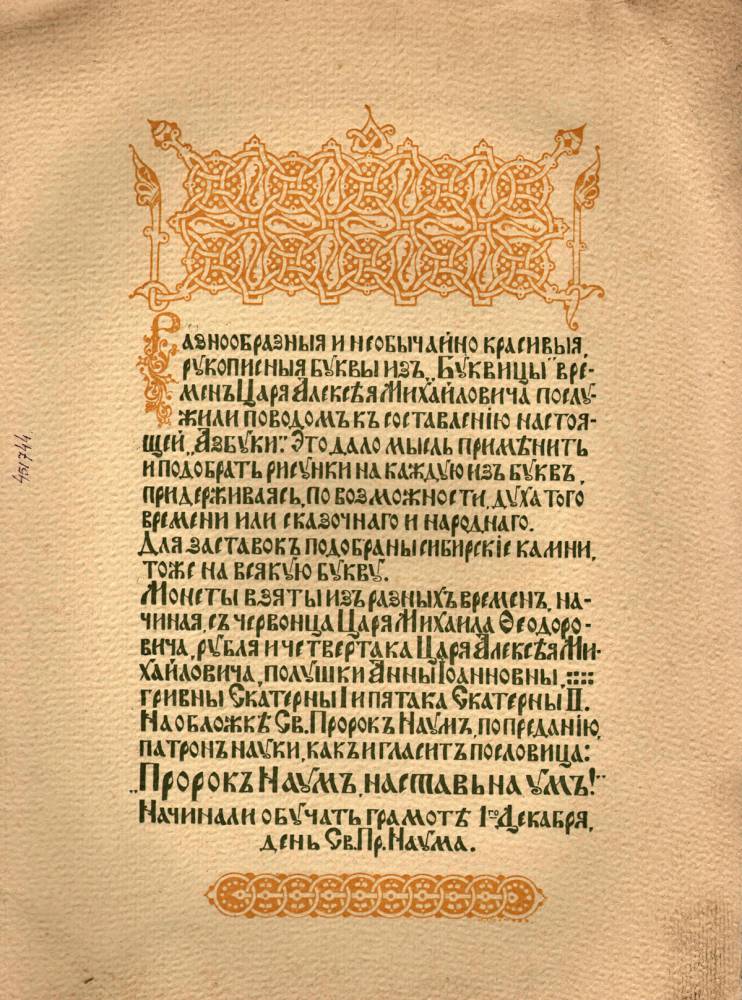 Разнообразныя и необычайно красивыя,
рукописныя буквы изъ „Буквицы" вре-
менъ Царя Алексѣя Михайловича послу-
жили поводомъ къ составленію настоя-
щей „Азбуки". Это дало мысль примѣнить
и подобрать рисунки на каждую изъ буквъ,
придерживаясь, по возможности, духа того
времени или сказочнаго и народнаго.
Для заставокъ подобраны сибирскіе камни,
тоже на всякую букву.
Монеты взяты изъ разныхъ временъ, на-
чиная, съ червонца Царя Михаила Ѳеодоро-
вича, рубля и четвертака Царя Алексѣя Ми-
хайловича, полушки Анны Іоанновны, ::::
гривны Екатерны I и пятака Екатерны II.
На обложкѣ Св. Пророкъ Наумъ, по преданію,
патронъ науки, какъ и гласитъ пословица:
„Пророкъ Наумъ, наставь на умъ!"
Начинали обучать грамотѣ 1го Декабря,
день Св. Пр. Наума.